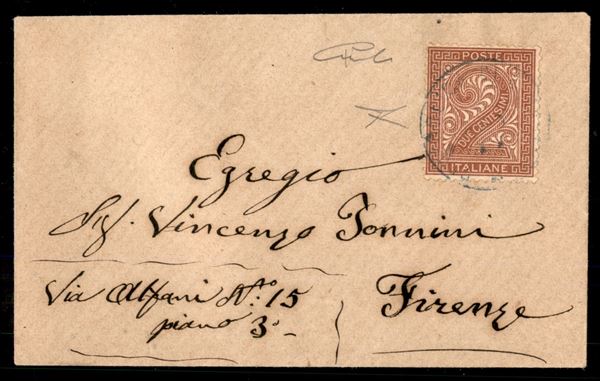 POSTE
DUE CENTESIMI
ITALIANE
Egregio
Sig. Vincenzo Tonnini
Via Alfani N.° 15
piano 3°
Firenze